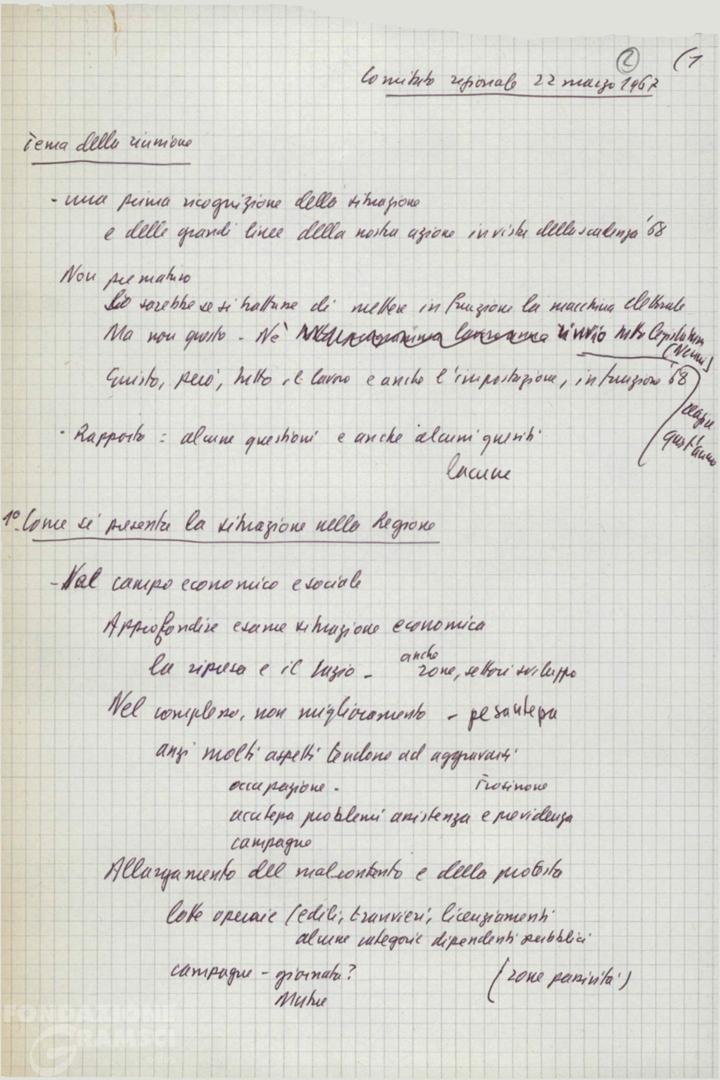 (1
2
Comitato regionale 22 marzo 1967
Tema della riunione
- una prima ricognizione della situazione
e delle grandi linee della nostra azione in vista della scadenza '68
Non prematuro
Lo sarebbe se si trattasse di mettere in funzione la macchina elettorale
Ma non questo - Nè rinvio tutto legislatura
(Nenni)
Giusto, però, tutto il lavoro e anche l'impostazione, in funzione '68
quest'anno
- Rapporto = alcune questioni e anche alcuni quesiti
lacune
1° - Come si presenta la situazione nella Regione
- Nel campo economico e sociale
Approfondire esame situazione economica
la ripresa e il Lazio - anche zone, settori sviluppo
Nel complesso, non miglioramento - pesantezza
anzi molti aspetti tendono ad aggravarsi
occupazione - Frosinone
acutezza problemi assistenza e previdenza
campagne
Allargamento del malcontento e della protesta
lotte operaie (edili, tranvieri, licenziamenti
alcune categorie dipendenti pubblici
campagne - giornata? (zone passività)
Mutue
FONDAZIONE
GRAMSCI